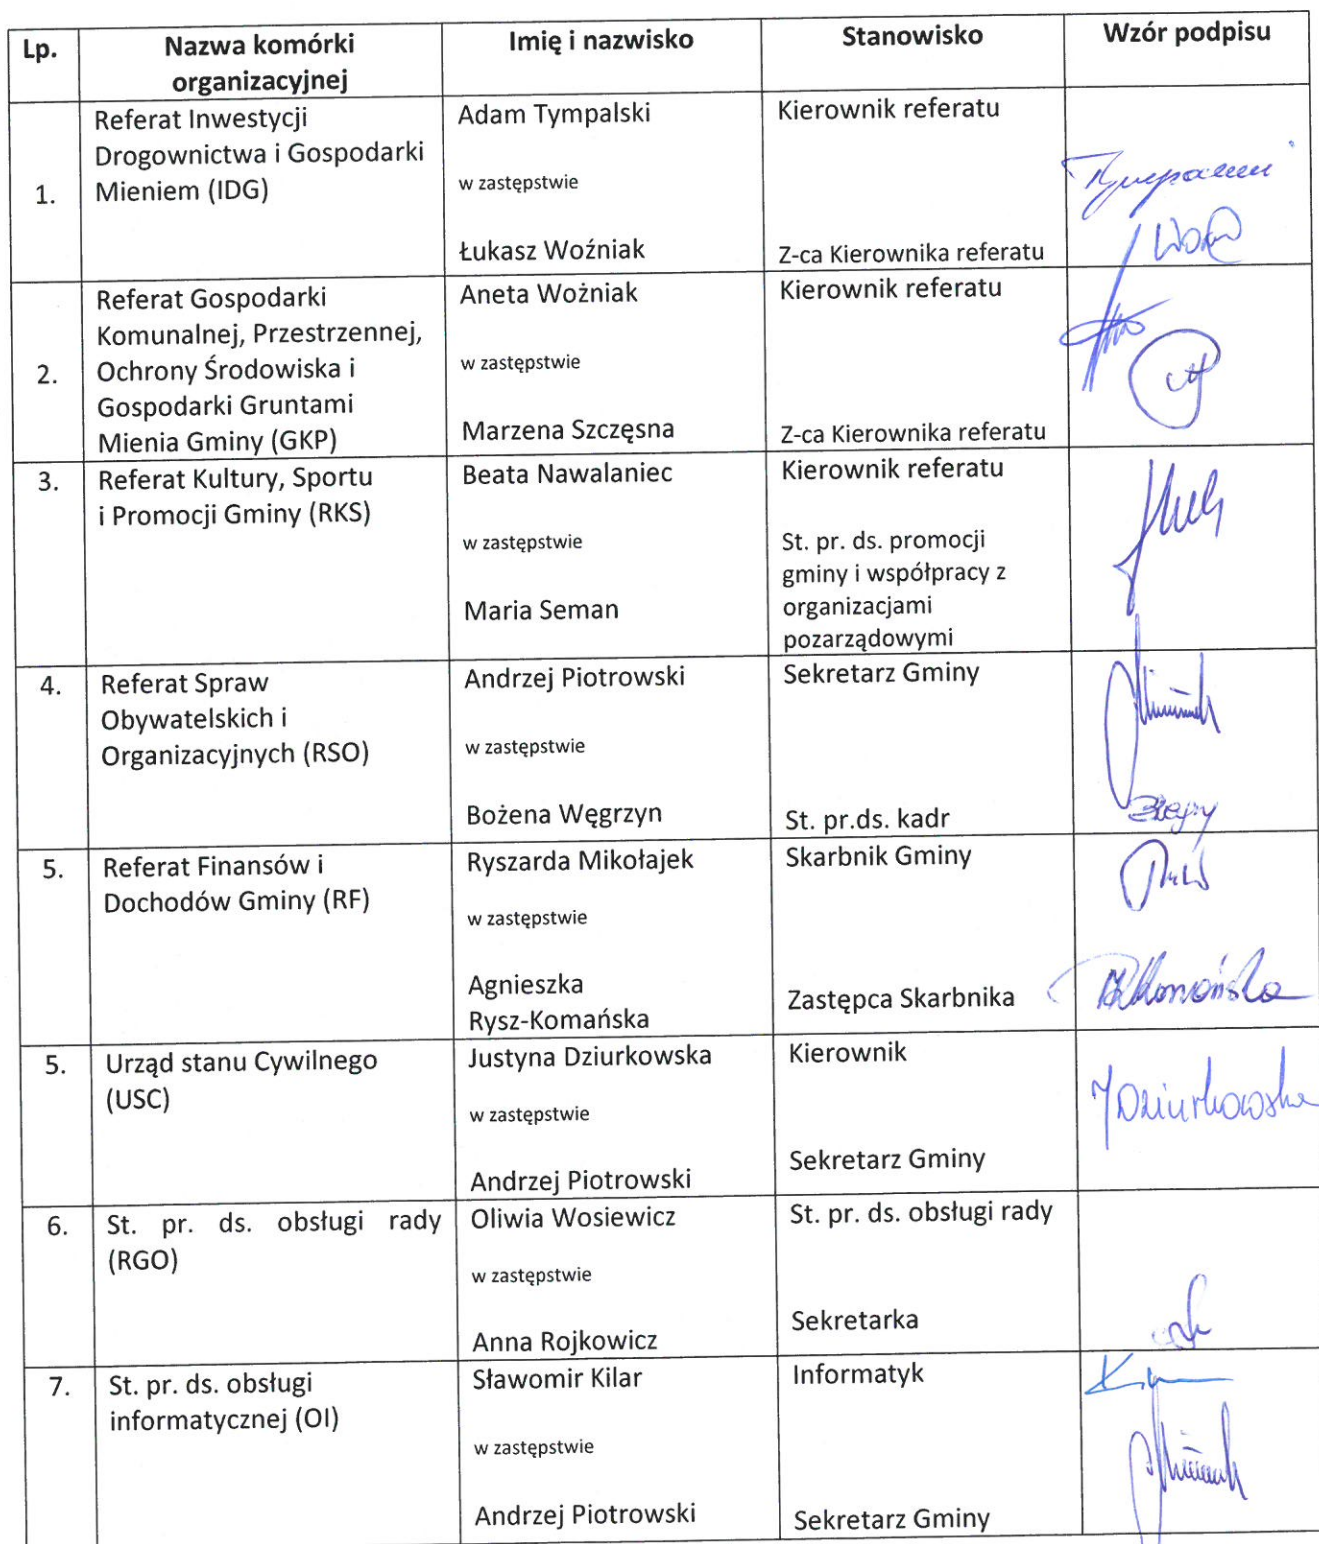 Lp.
Nazwa komórki
organizacyjnej
Imię i nazwisko
Stanowisko
Wzór podpisu
1.
Referat Inwestycji
Drogownictwa i Gospodarki
Mieniem (IDG)
Adam Tympalski
w zastępstwie
Łukasz Woźniak
Kierownik referatu
Z-ca Kierownika referatu
2.
Referat Gospodarki
Komunalnej, Przestrzennej,
Ochrony Środowiska i
Gospodarki Gruntami
Mienia Gminy (GKP)
Aneta Wożniak
w zastępstwie
Marzena Szczęsna
Kierownik referatu
Z-ca Kierownika referatu
3.
Referat Kultury, Sportu
i Promocji Gminy (RKS)
Beata Nawalaniec
w zastępstwie
Maria Seman
Kierownik referatu
St. pr. ds. promocji
gminy i współpracy z
organizacjami
pozarządowymi
4.
Referat Spraw
Obywatelskich i
Organizacyjnych (RSO)
Andrzej Piotrowski
w zastępstwie
Bożena Węgrzyn
Sekretarz Gminy
St. pr.ds. kadr
5.
Referat Finansów i
Dochodów Gminy (RF)
Ryszarda Mikołajek
w zastępstwie
Agnieszka
Rysz-Komańska
Skarbnik Gminy
Zastępca Skarbnika
5.
Urząd stanu Cywilnego
(USC)
Justyna Dziurkowska
w zastępstwie
Andrzej Piotrowski
Kierownik
Sekretarz Gminy
JDziurkowska
6.
St. pr. ds. obsługi rady
(RGO)
Oliwia Wosiewicz
w zastępstwie
Anna Rojkowicz
St. pr. ds. obsługi rady
Sekretarka
7.
St. pr. ds. obsługi
informatycznej (OI)
Sławomir Kilar
w zastępstwie
Andrzej Piotrowski
Informatyk
Sekretarz Gminy